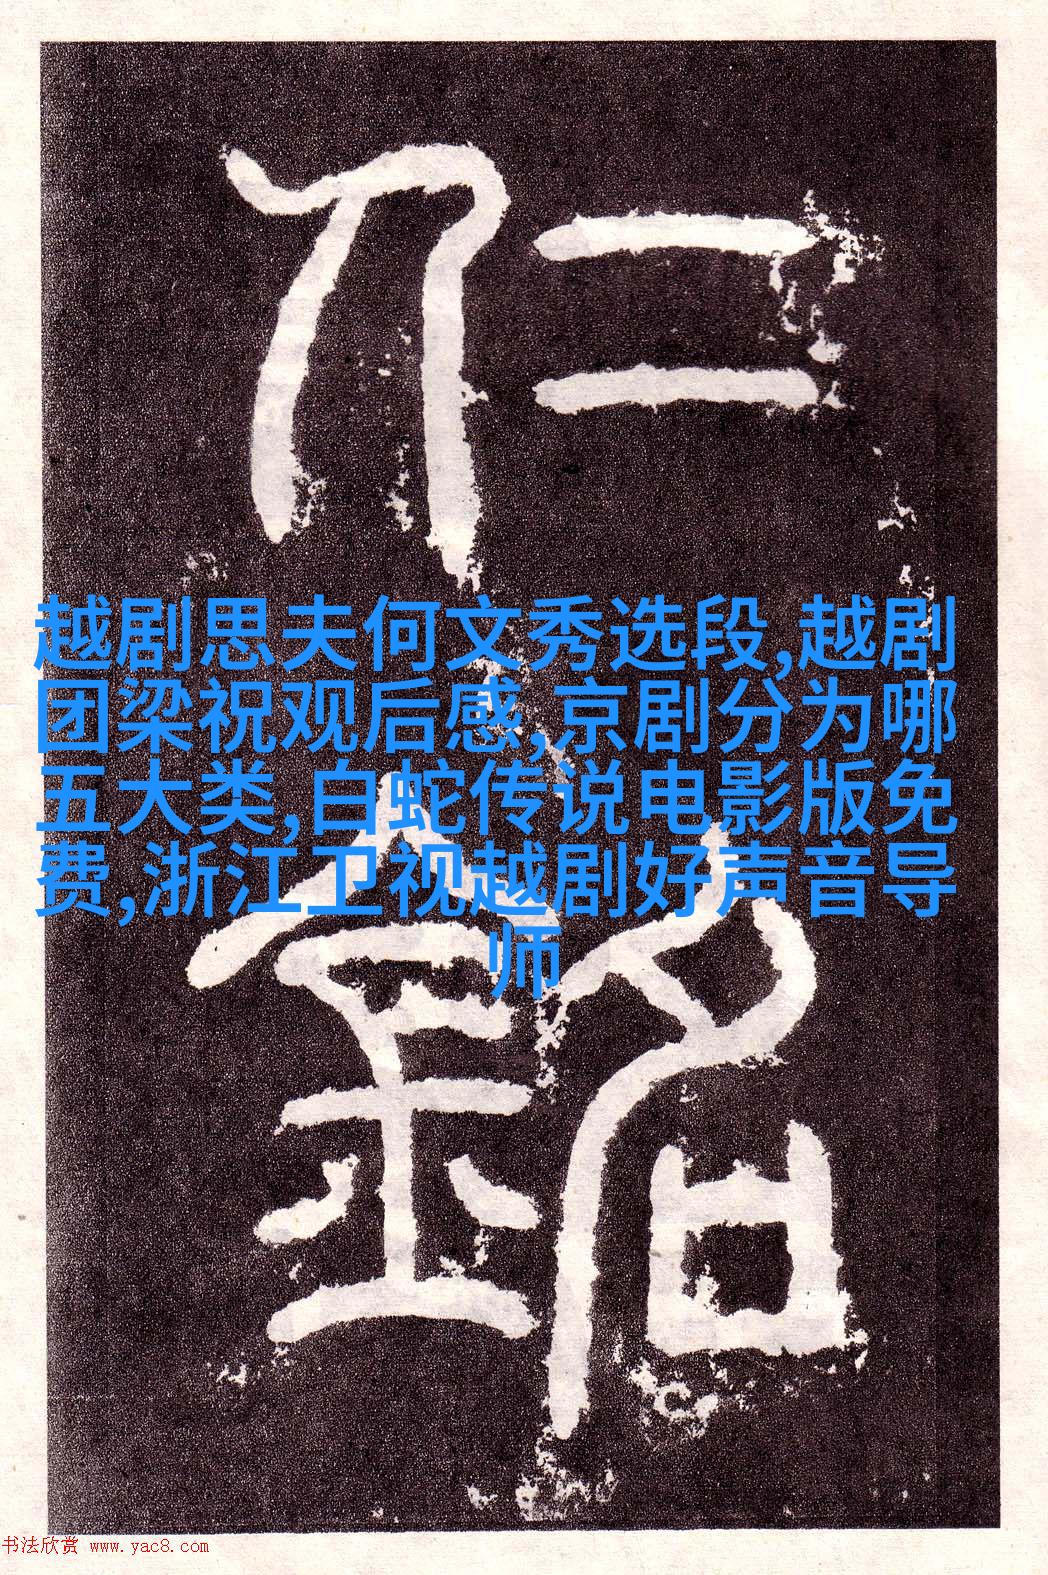 仁
越剧思夫何文秀选段,越剧
团梁祝观后感,京剧分为哪
五大类,白蛇传说电影版免
费,浙江卫视越剧好声音导
师
銘
书法欣赏 www.yac8.com